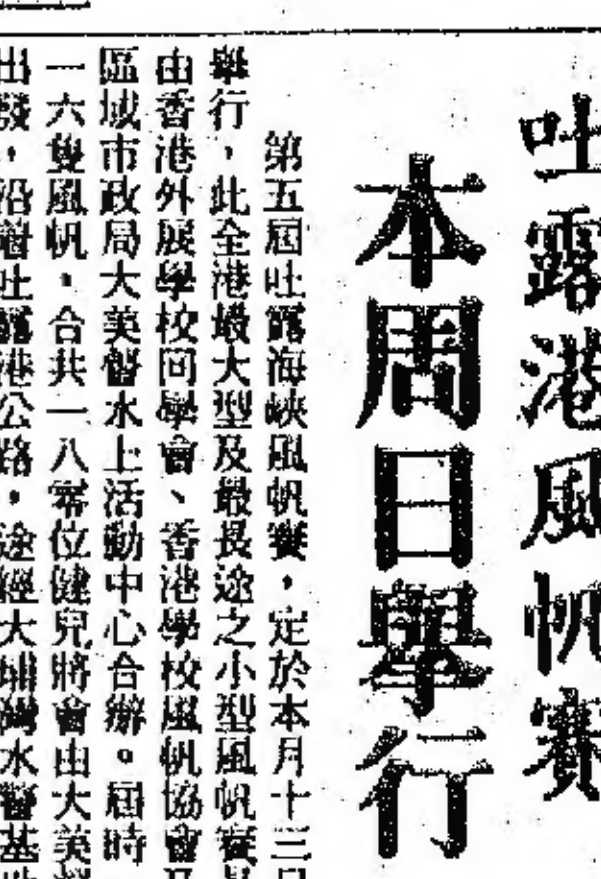 吐露港風帆賽
本周日舉行
第五屆吐露海峽風帆賽，定於本月十三日
舉行，此全港最大型及最長途之小型風帆賽是
由香港外展學校同學會、香港學校風帆協會及
區域市政局大美督水上活動中心合辦。屆時
一六隻風帆，合共一八零位健兒將會由大美督
出發，沿着吐露港公路，途經大埔灣水警基地